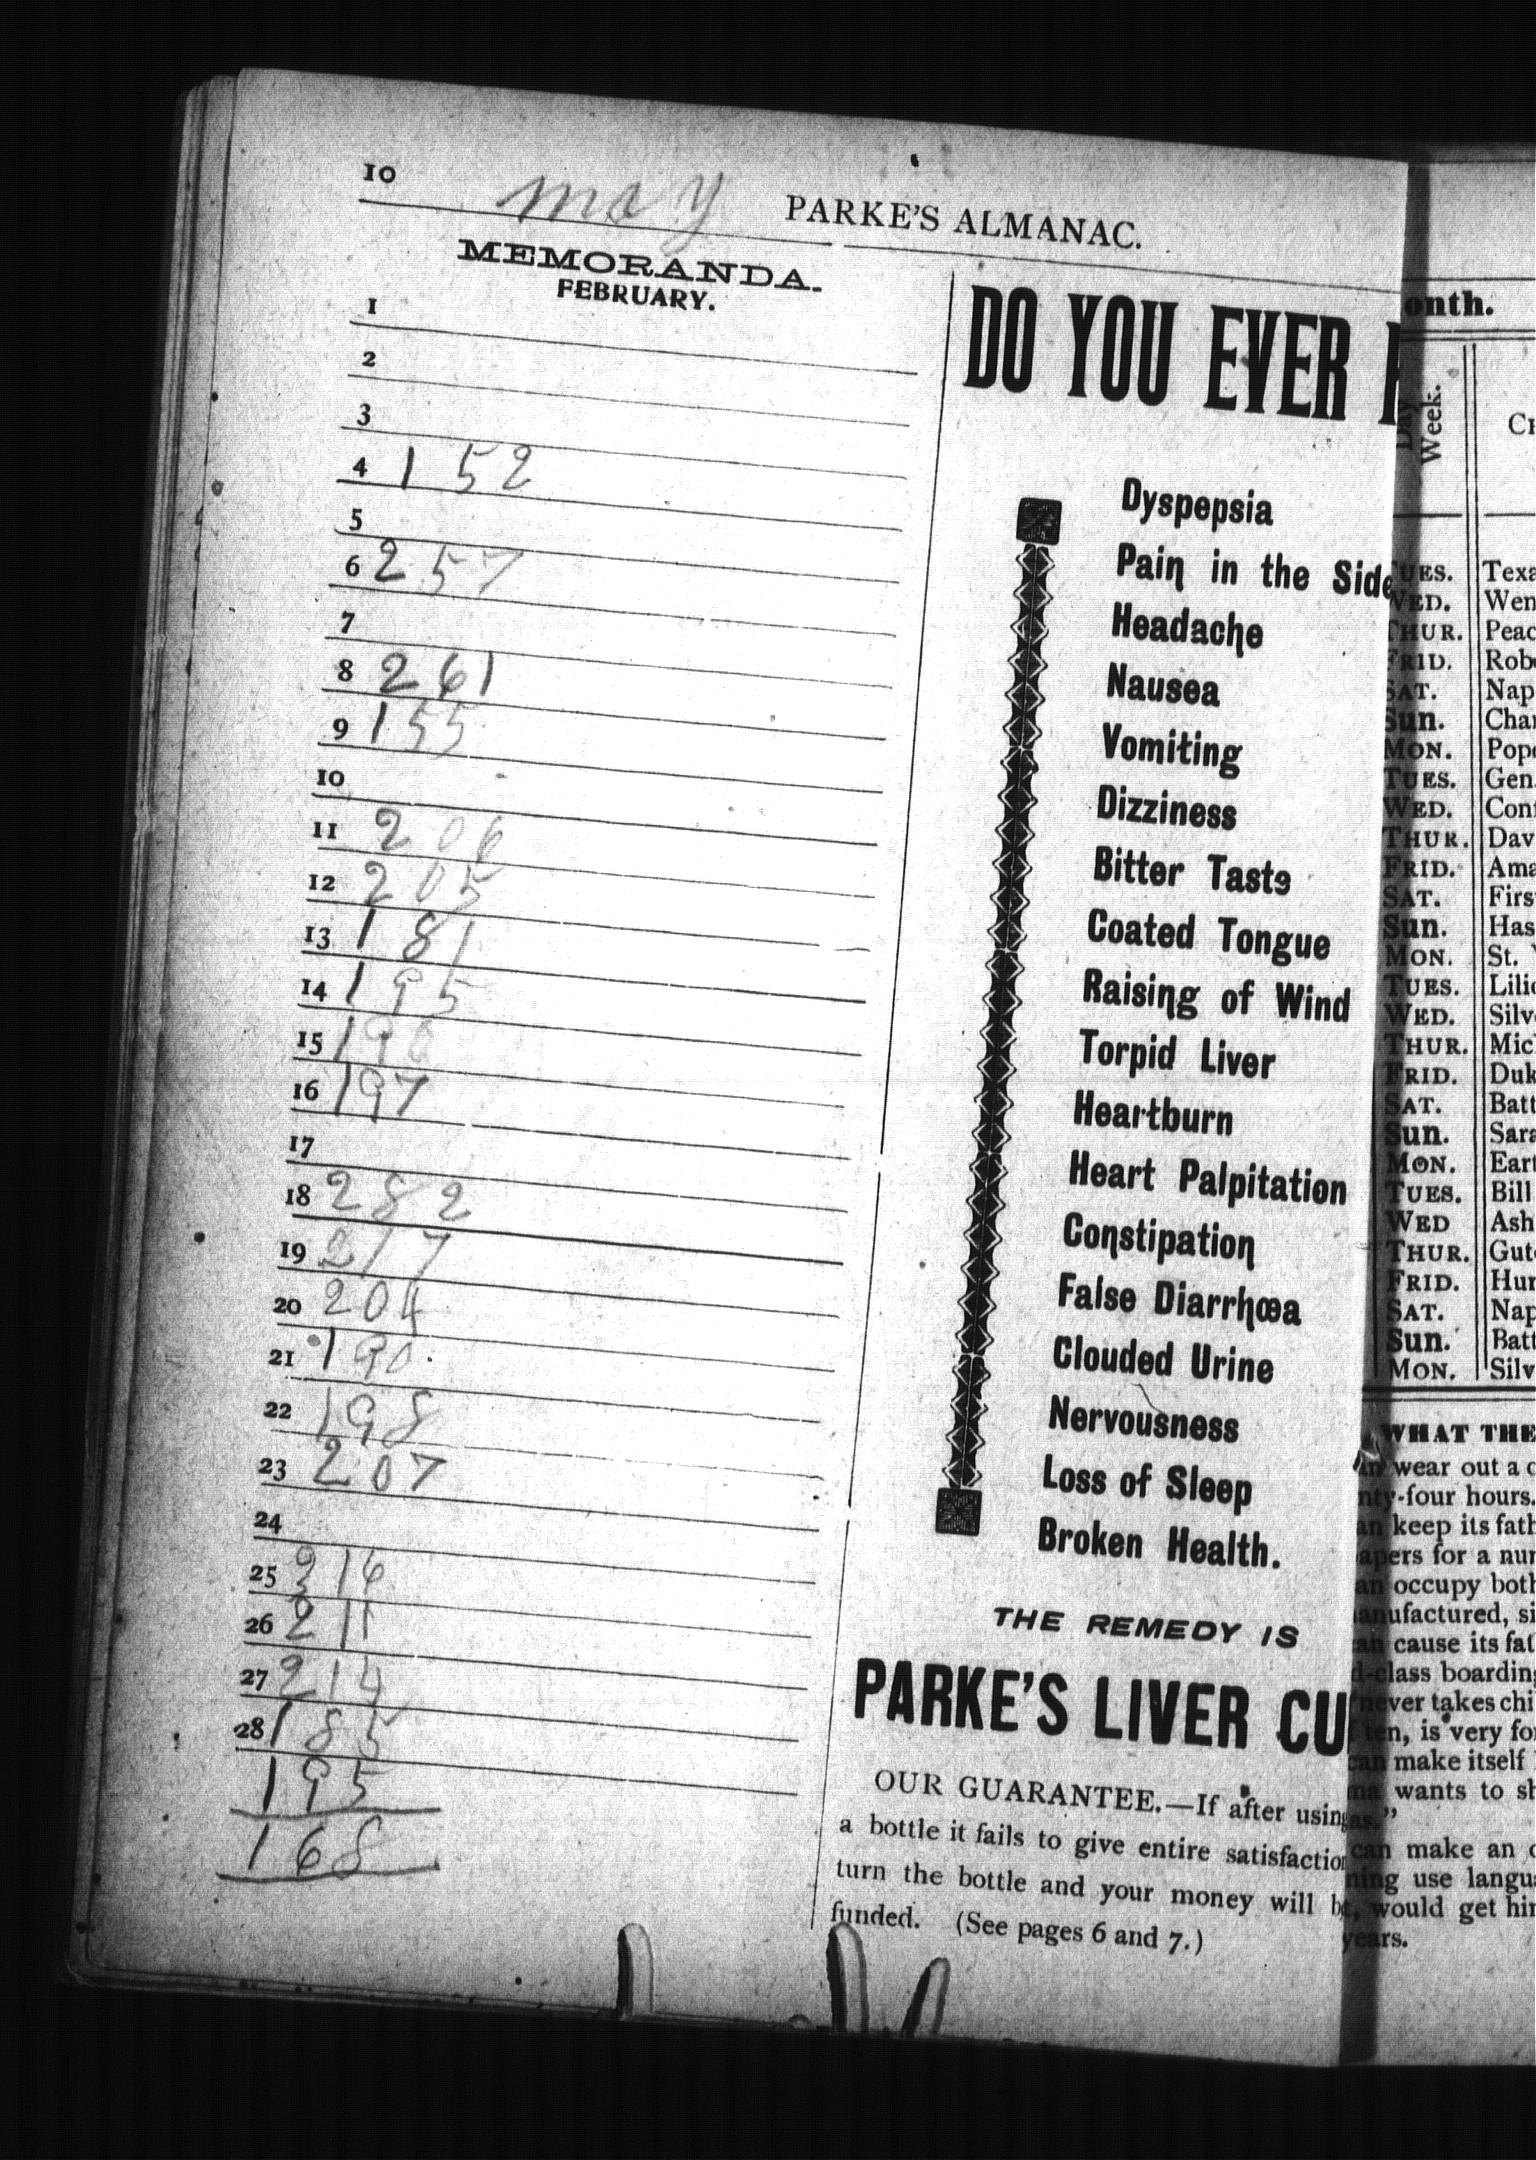 10
may
PARKE'S ALMANAC.
MEMORANDA.
FEBRUARY.
1
2
3
4 152
5
6 257
7
8 261
9 155
10
11 206
12 205
13 181
14 195
15 190
16 197
17
18 282
19 217
20 204
21 190
22 198
23 207
24
25 216
26 211
27 214
28 185
195
168
DO YOU EVER
Dyspepsia
Pain in the Side
Headache
Nausea
Vomiting
Dizziness
Bitter Taste
Coated Tongue
Raising of Wind
Torpid Liver
Heartburn
Heart Palpitation
Constipation
False Diarrhœa
Clouded Urine
Nervousness
Loss of Sleep
Broken Health.
THE REMEDY IS
PARKE'S LIVER CU
OUR GUARANTEE.—If after using
a bottle it fails to give entire satisfaction
turn the bottle and your money will b
funded. (See pages 6 and 7.)
onth.
Day
Week.
UES. Texa
WED. Wen
THUR. Peac
FRID. Rob
SAT. Nap
Sun. Char
MON. Pope
TUES. Gen.
WED. Conf
THUR. Dav
FRID. Ama
SAT. Firs
Sun. Has
MON. St.
TUES. Lili
WED. Silv
THUR. Mic
FRID. Duk
SAT. Batt
Sun. Sara
MON. Eart
TUES. Bill
WED Ash
THUR. Gut
FRID. Hur
SAT. Nap
Sun. Batt
MON. Silv
WHAT THE
wear out a
nty-four hours.
an keep its fath
apers for a nur
an occupy both
anufactured, si
cause its fat
d-class boarding
never takes chi
ten, is very fo
can make itself
ma wants to sh
as."
can make an
ning use langu
would get hi
years.